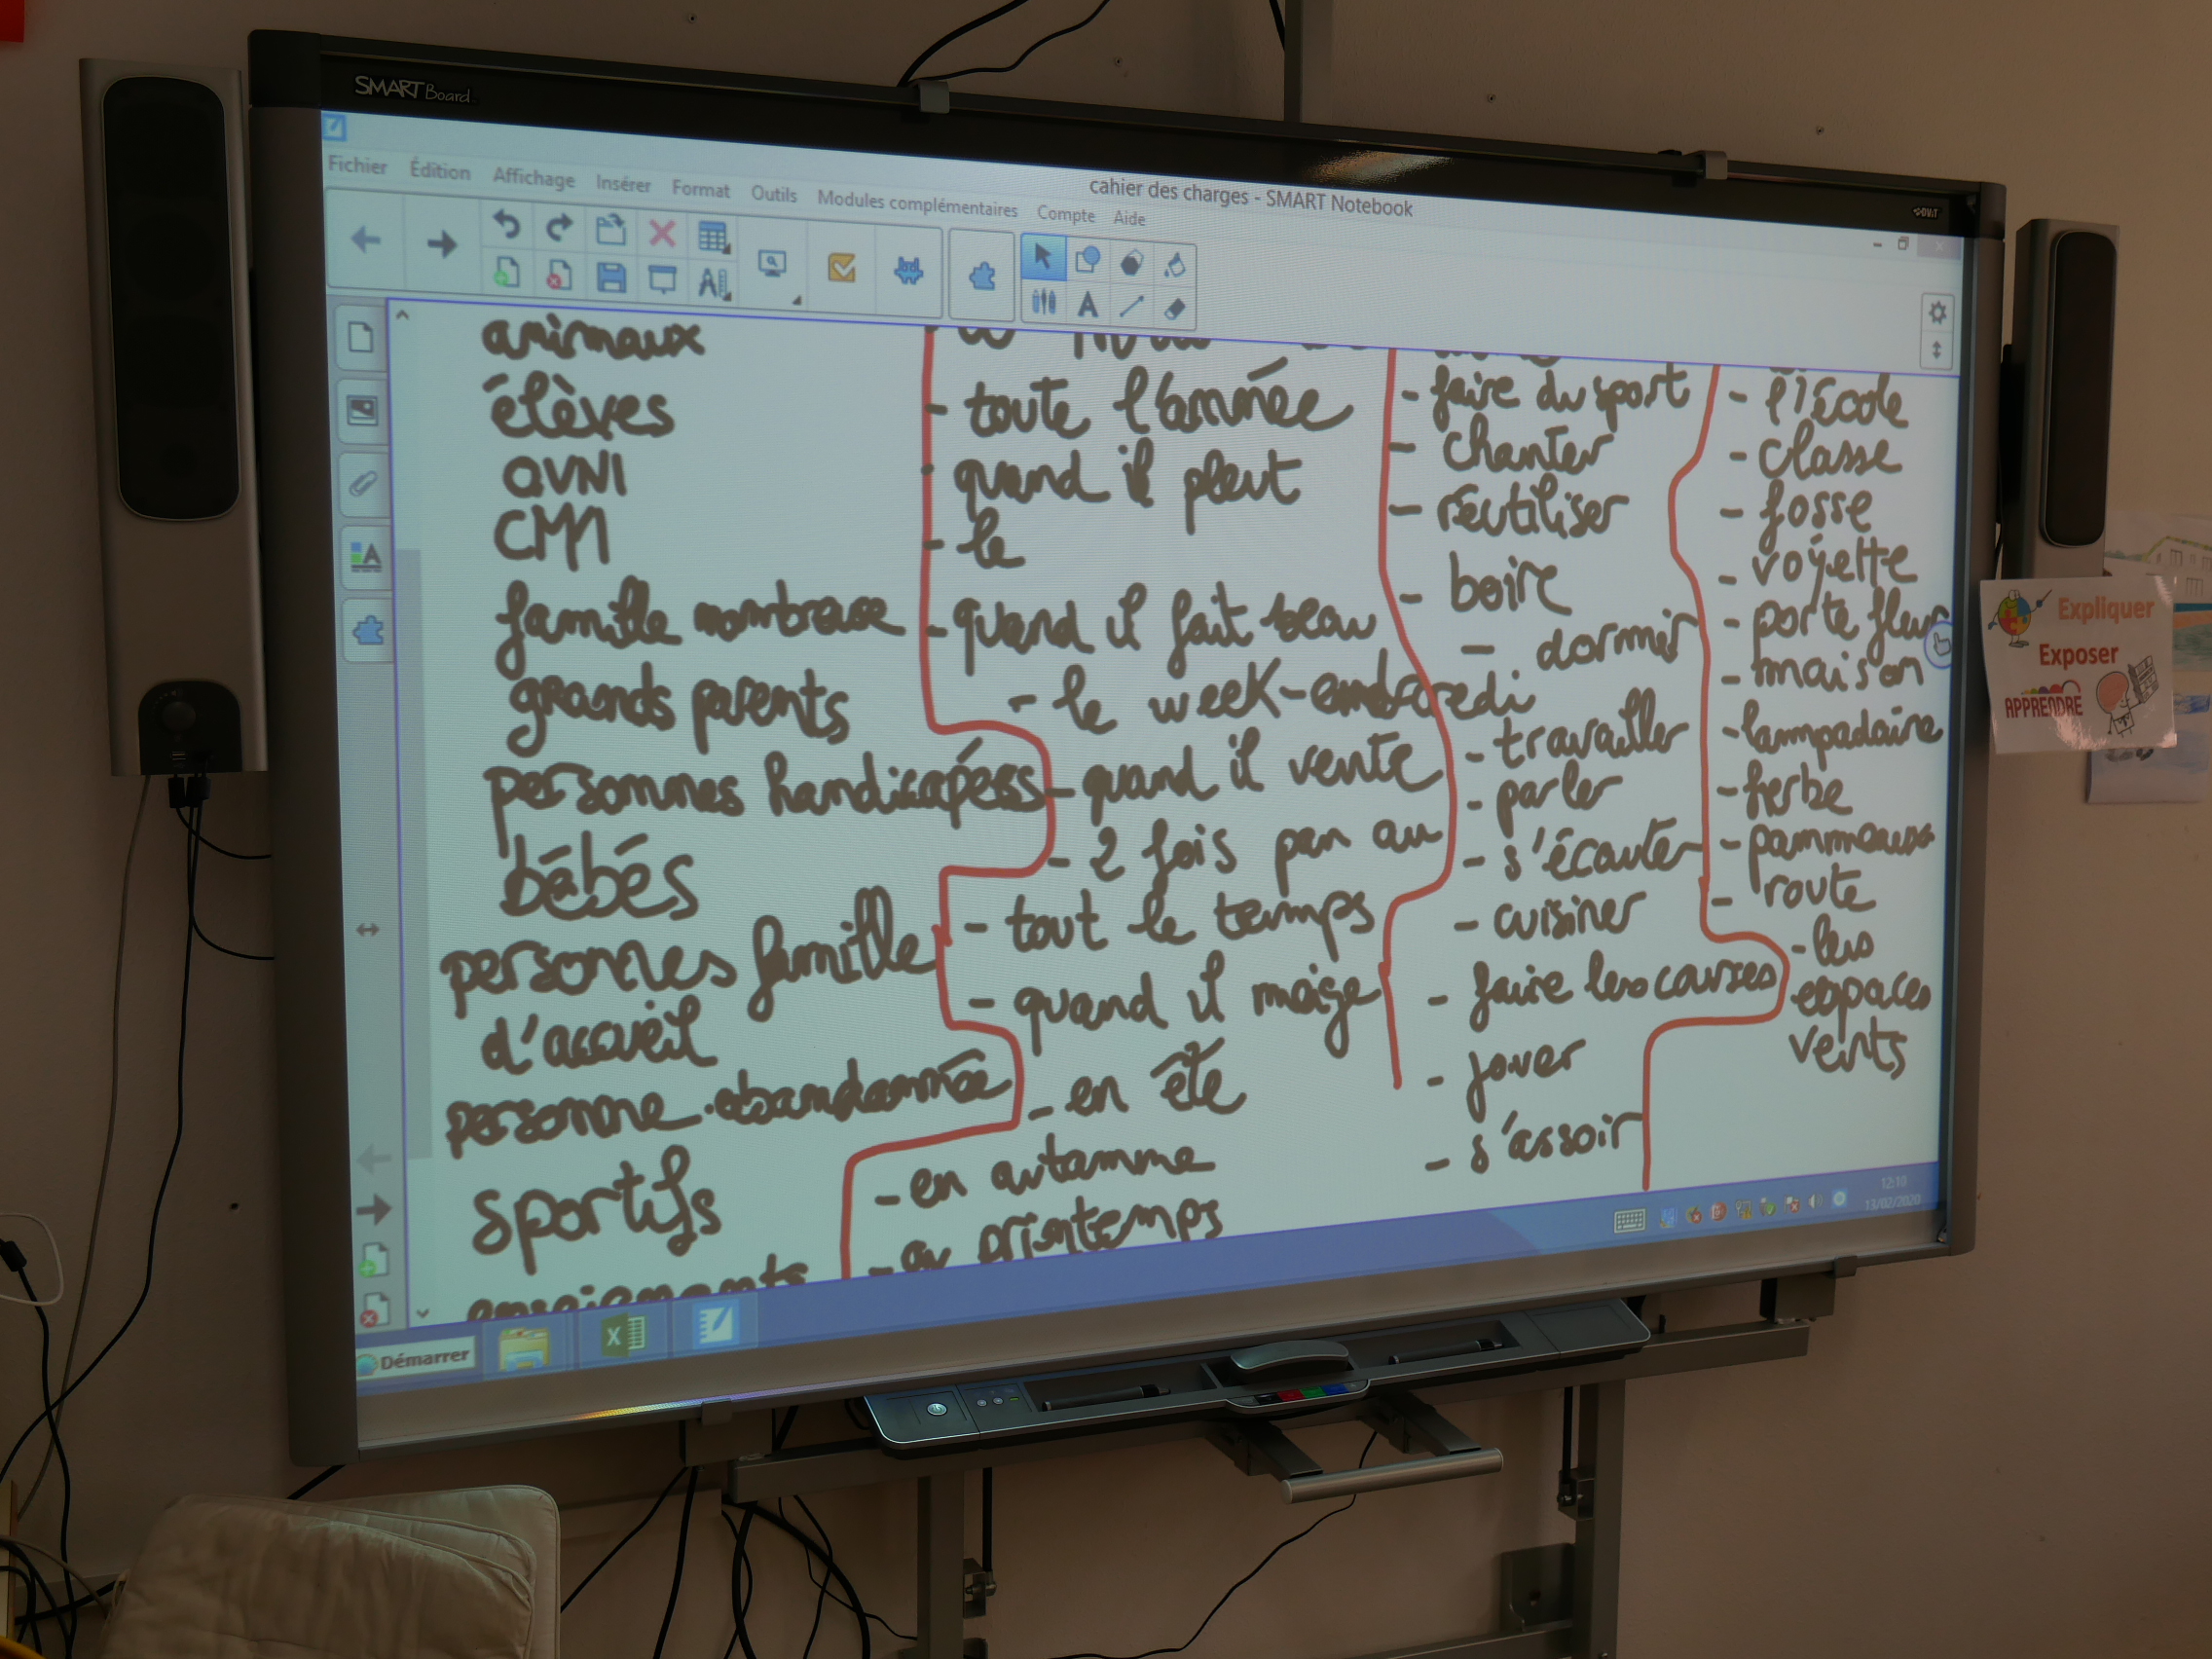 SMART Board
cahier des charges - SMART Notebook
Fichier Édition Affichage Insérer Format Outils Modules complémentaires Compte Aide
animaux
élèves
OVNI
CM1
famille nombreuse
grands parents
personnes handicapées
bébés
personnes famille
d'accueil
personne abandonnée
sportifs
- toute l'année
- quand il pleut
- le
- quand il fait beau
- le week-end
- quand il vente
- 2 fois par an
- tout le temps
- quand il neige
- en été
- en automne
- au printemps
- faire du sport
- chanter
- réutiliser
- boire
- dormir
- travailler
- parler
- s'écouter
- cuisiner
- faire les courses
- jouer
- s'assoir
- l'école
- classe
- fosse
- voyette
- porte fleur
- maison
- lampadaire
- herbe
- panneaux
- route
- les
espaces
verts
12:10
13/02/2020
Démarrer
Expliquer
Exposer
APPRENDRE